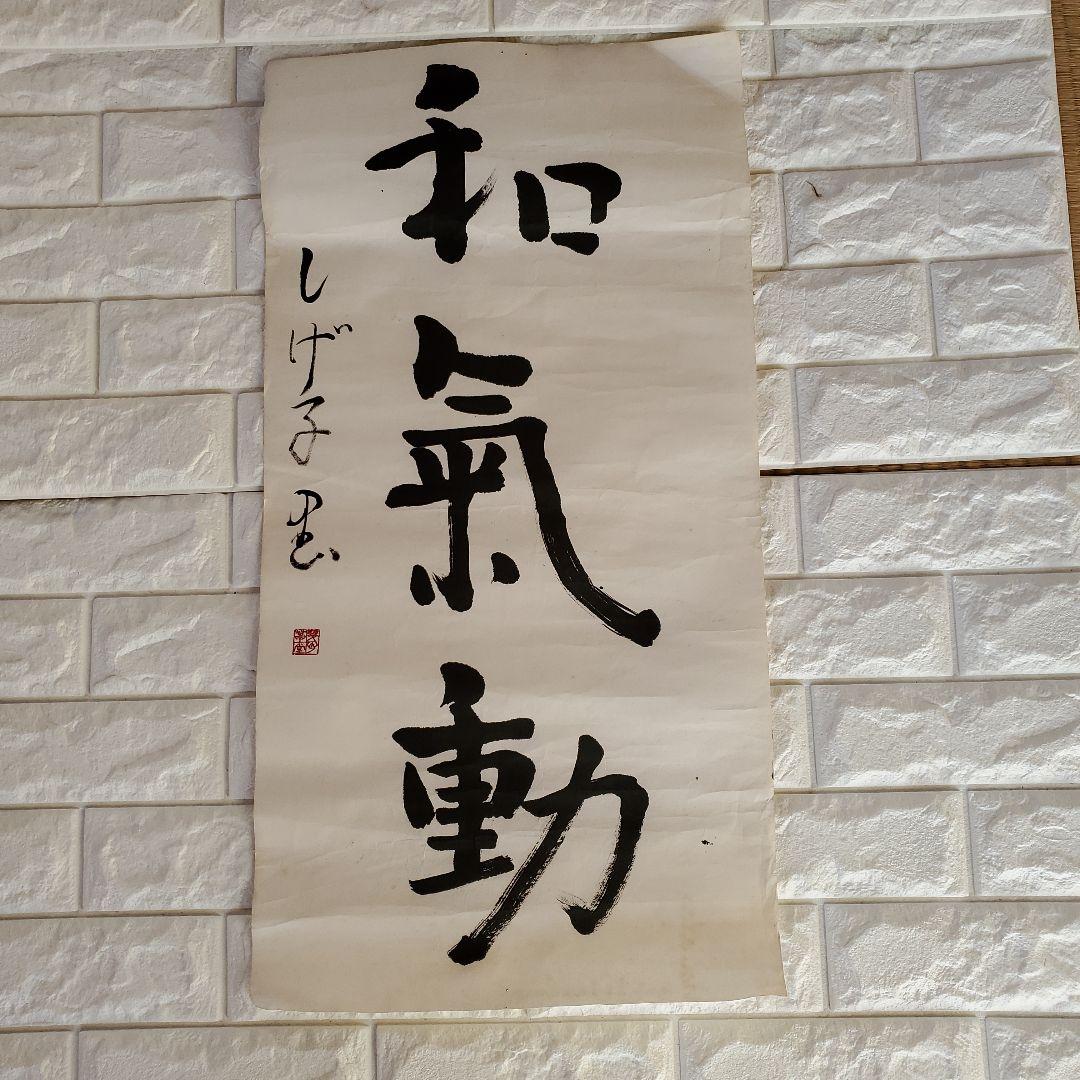 和氣動
しげ子書